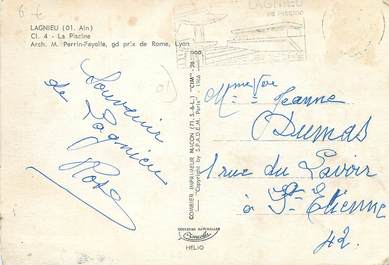 6 €
LAGNIEU (01. Ain)
Cl. 4 - La Piscine
Arch. M. Perrin-Fayolle, gd prix de Rome, Lyon
LAGNIEU
Souvenir
de Lagnieu
Rose
COMBIER IMPRIMEUR MACON (S.-&-L.) "CIM"
Copyright by S.P.A.D.E.M. Paris - 1966
COULEURS NATURELLES
Cimcolor
HELIO
Mme Vve
Jeanne
DUMAS
1 rue du Lavoir
à St Etienne
42.